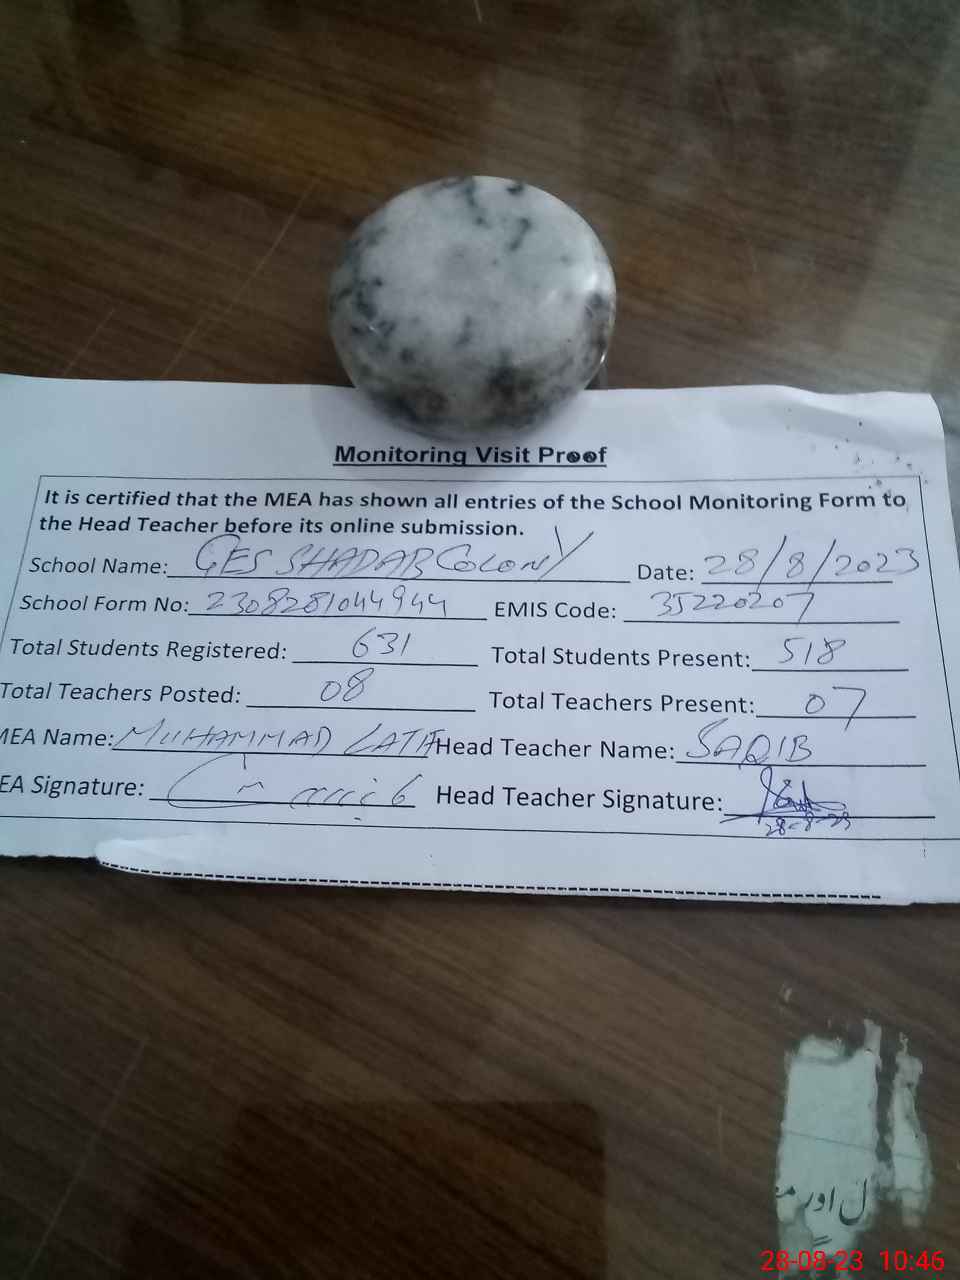 Monitoring Visit Proof
It is certified that the MEA has shown all entries of the School Monitoring Form to
the Head Teacher before its online submission.
School Name: GES SHADAB COLONY Date: 28/8/2023
School Form No: 2308281044944 EMIS Code: 35220207
Total Students Registered: 631 Total Students Present: 518
Total Teachers Posted: 08 Total Teachers Present: 07
MEA Name: MUHAMMAD LATIF Head Teacher Name: SAQIB
EA Signature: Head Teacher Signature:
28-8-23
ل اور
28-08-23 10:46